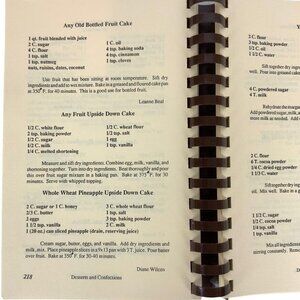 Any Old Bottled Fruit Cake
1 qt. fruit blended with juice
2 C. sugar
4 C. flour
1 tsp. salt
1 tsp. nutmeg
nuts, raisins, dates, coconut
1 C. oil
4 tsp. baking soda
1 tsp. cinnamon
1 tsp. cloves
Use fruit that has been sitting at room temperature. Sift dry
ingredients and add to wet mixture. Bake in greased and floured cake pan
at 350° F. for 40 minutes. This is a good use for bottled fruit.
Leanne Beal
Any Fruit Upside Down Cake
1/2 C. white flour
2 tsp. baking powder
1/2 C. sugar
1/2 C. milk
1/4 C. melted shortening
1/2 C. wheat flour
1/2 tsp. salt
1 egg
1 tsp. vanilla
Measure and sift dry ingredients. Combine egg, milk, vanilla, and
shortening together. Turn into dry ingredients. Beat thoroughly and pour
over fruit sugar mixture in a baking pan. Bake at 375° F. for 30
minutes. Serve with whipped topping.
Whole Wheat Pineapple Upside Down Cake
2 C. sugar or 1 C. honey
2/3 C. butter
2 eggs
1 1/2 tsp. vanilla
1 (20 oz.) can sliced pineapple (drain, reserving juice)
3 C. whole wheat flour
1 tsp. salt
3 tsp. baking powder
2 C. milk
Cream sugar, butter, eggs, and vanilla. Add dry ingredients and
milk. Mix. Place pineapple slices in a 9x13 pan with 3 T. juice. Pour batter
over fruit. Bake at 350° F. for 30-40 minutes.
Diane Wilcox
218
Desserts and Confections
2 C. sugar
3 tsp. baking
2 C. milk
Sift dry ingredients
well. Pour into greased cake
4 C. powdered sugar
T. milk
more milk as needed. Add
2 C. flour
1 T. cocoa
1/4 C. dried egg
2 tsp. baking powder
Sift dry ingredients
oil. Mix well. Bake in a g
1 1/2 C. sugar
1/2 C.
2 T. cocoa
Mix all ingredients
stirring constantly. Remove